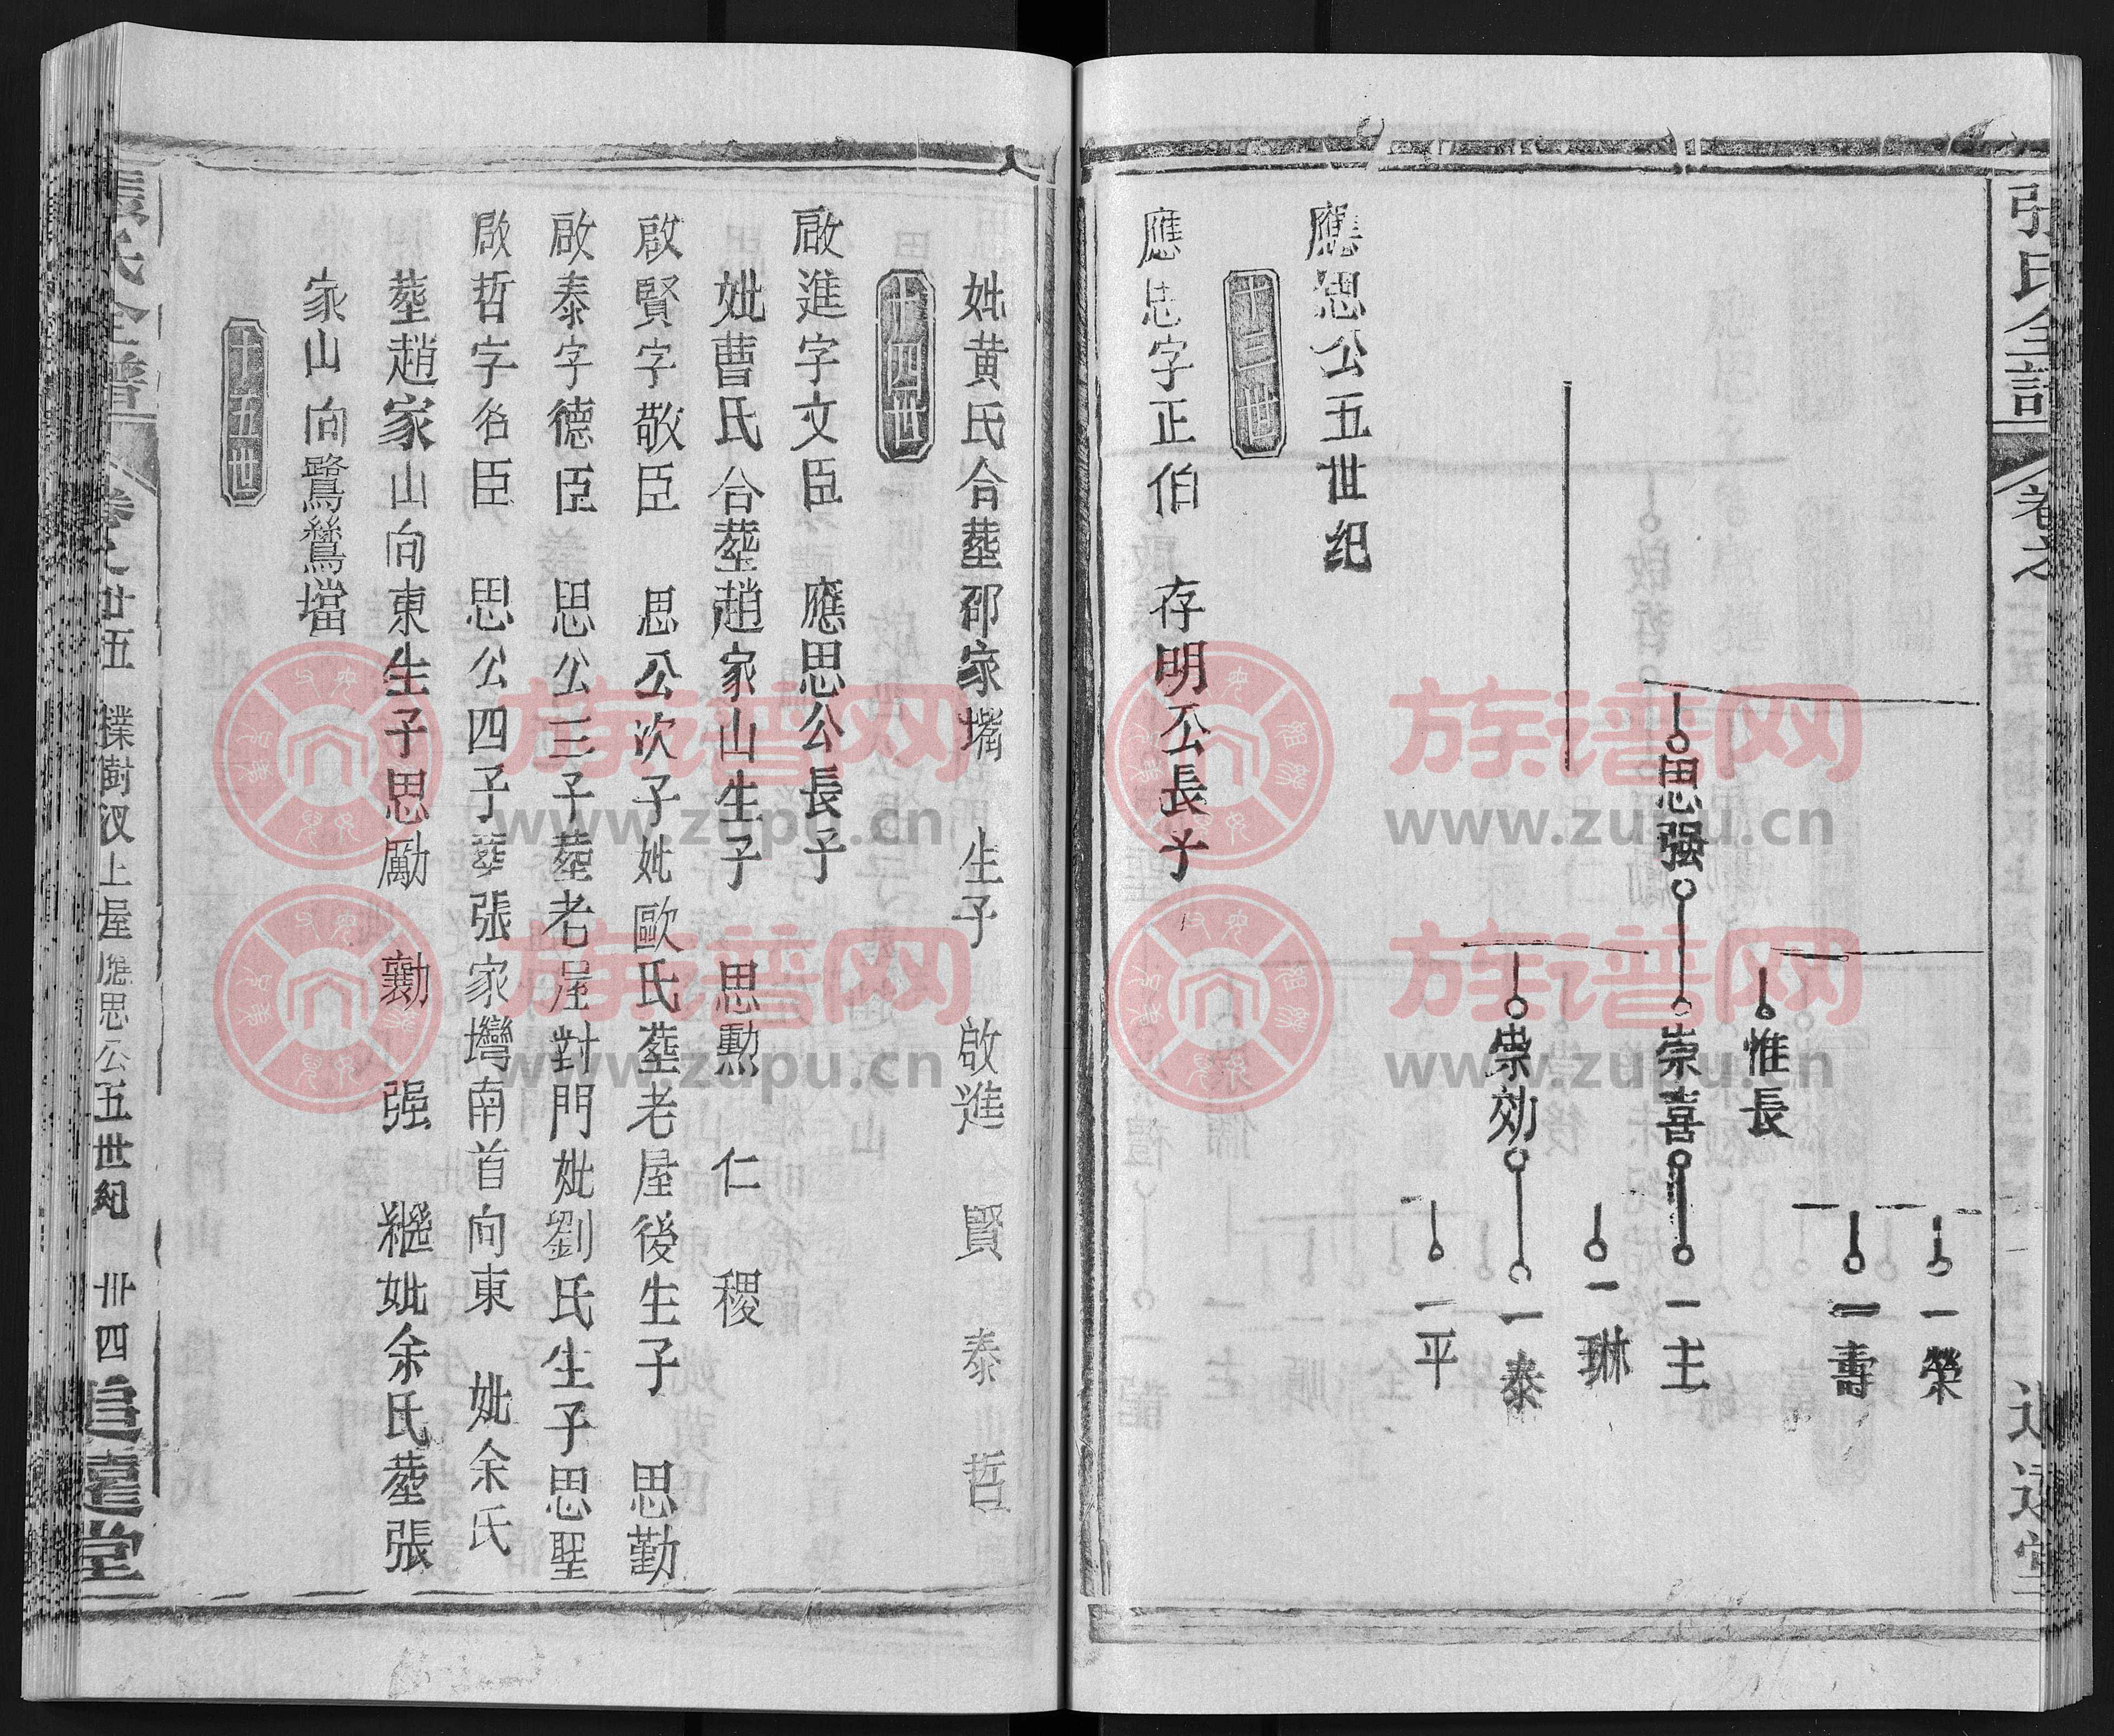 張氏全譜
卷之
追遠堂
一榮
一壽
惟長
思强 崇喜 一主
一琳
崇効 一泰
一平
應思公五世紀
十三世
應忠字正伯 存明公長子
妣黄氏合塟邵家墈 生子 啟進 賢 泰 哲
十四世
啟進字文臣 應思公長子
妣曹氏合塟趙家山生子 思勲 仁 稷
啟賢字敬臣 思公次子妣歐氏塟老屋後生子 思勤
啟泰字德臣 思公三子塟老屋對門妣劉氏生子思聖
啟哲字名臣 思公四子塟張家灣南首向東 妣余氏
塟趙家山向東生子思勵 勷 强 繼妣余氏塟張
家山向鷺鷥壋
十五世
張氏全譜 卷之廿五 樸樹汊上屋應思公五世紀 卅四 追遠堂
族谱网
www.zupu.cn
族谱网
www.zupu.cn
族谱网
www.zupu.cn
族谱网
www.zupu.cn